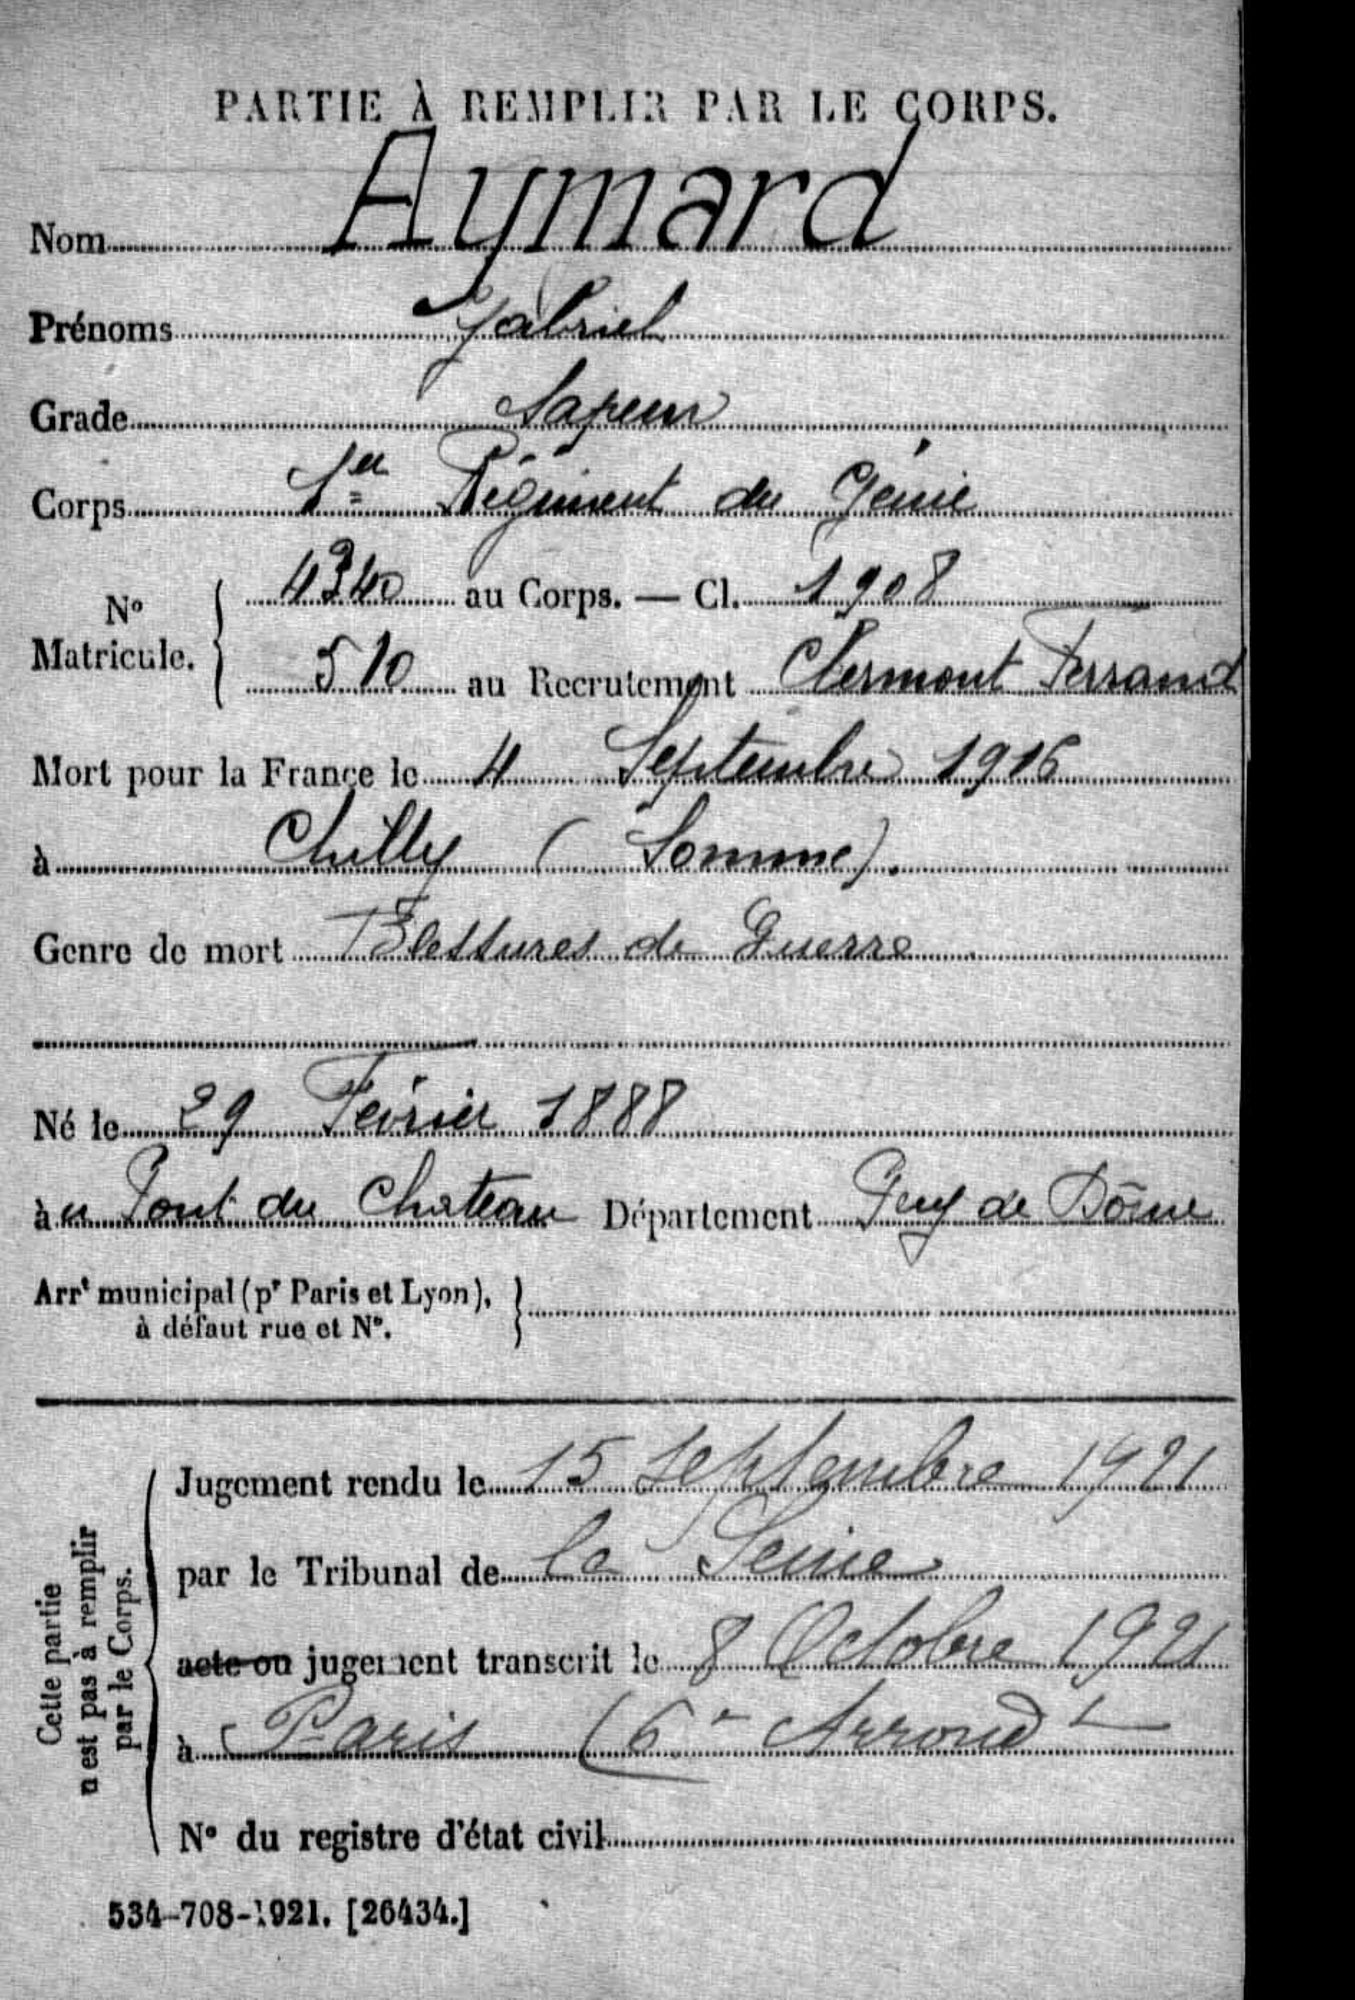 PARTIE À REMPLIR PAR LE CORPS.
Nom Aymard
Prénoms Gabriel
Grade Sapeur
Corps 1er Régiment du Génie
No Matricule. { 4340 au Corps. — Cl. 1908
510 au Recrutement Clermont Ferrand
Mort pour la France le 4 Septembre 1916
à Chilly (Somme).
Genre de mort Blessures de Guerre
Né le 29 Février 1888
à u Pont du Chateau Département Puy de Dôme
Arrt municipal (pr Paris et Lyon), }
à défaut rue et No.
Cette partie
n'est pas à remplir
par le Corps.
Jugement rendu le 15 Septembre 1921
par le Tribunal de la Seine
acte ou jugement transcrit le 8 Octobre 1921
à Paris (6e Arrondt
No du registre d'état civil
534-708-1921. [26434.]